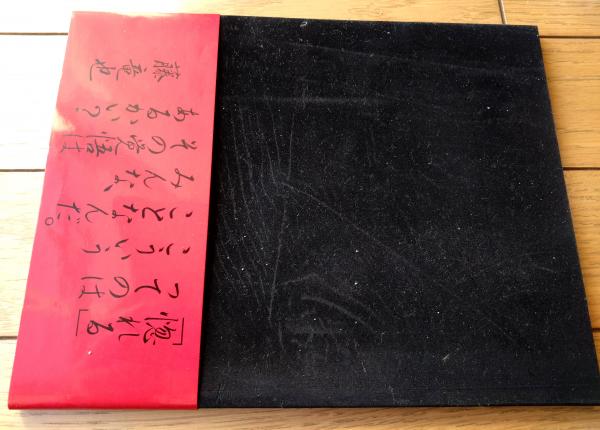 「惚れる」
ってのは
こういう
ことなんだ。
みんな、
その覚悟は
あるかい?
藤竜也